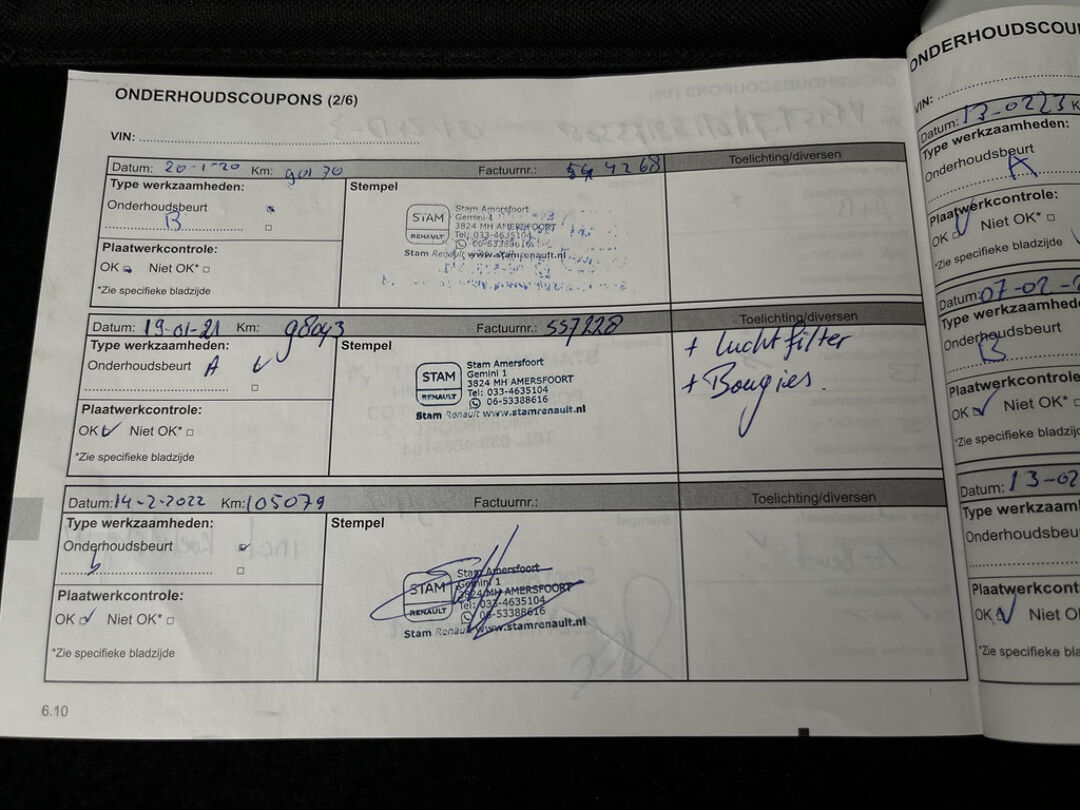 ONDERHOUDSCOUPONS (2/6)
VIN:
Datum: 20-1-20 Km: 90170 Factuurnr.: 544268 Toelichting/diversen
Type werkzaamheden: Stempel
Onderhoudsbeurt
B
STAM RENAULT
Stam Amersfoort
Gemini 1
3824 MH AMERSFOORT
Tel: 033-4635104
06-53388616
Stam Renault www.stamrenault.nl
Plaatwerkcontrole:
OK Niet OK*
*Zie specifieke bladzijde
Datum: 19-01-21 Km: 98043 Factuurnr.: 557228 Toelichting/diversen
Type werkzaamheden: Stempel
Onderhoudsbeurt A
STAM RENAULT
Stam Amersfoort
Gemini 1
3824 MH AMERSFOORT
Tel: 033-4635104
06-53388616
Stam Renault www.stamrenault.nl
+ luchtfilter
+ Bougies.
Plaatwerkcontrole:
OK Niet OK*
*Zie specifieke bladzijde
Datum: 14-2-2022 Km: 105079 Factuurnr.: Toelichting/diversen
Type werkzaamheden: Stempel
Onderhoudsbeurt
b
STAM RENAULT
Stam Amersfoort
Gemini 1
3824 MH AMERSFOORT
Tel: 033-4635104
06-53388616
Stam Renault www.stamrenault.nl
Plaatwerkcontrole:
OK Niet OK*
*Zie specifieke bladzijde
6.10
ONDERHOUDSCOU
VIN:
Datum: 13-0223 K
Type werkzaamheden:
Onderhoudsbeurt
A
Plaatwerkcontrole:
OK Niet OK*
*Zie specifieke bladzijde
Datum: 07-02-2
Type werkzaamhede
Onderhoudsbeurt
B
Plaatwerkcontrole
OK Niet OK*
*Zie specifieke bladzij
Datum: 13-02
Type werkzaam
Onderhoudsbeu
Plaatwerkcont
OK Niet O
*Zie specifieke bla